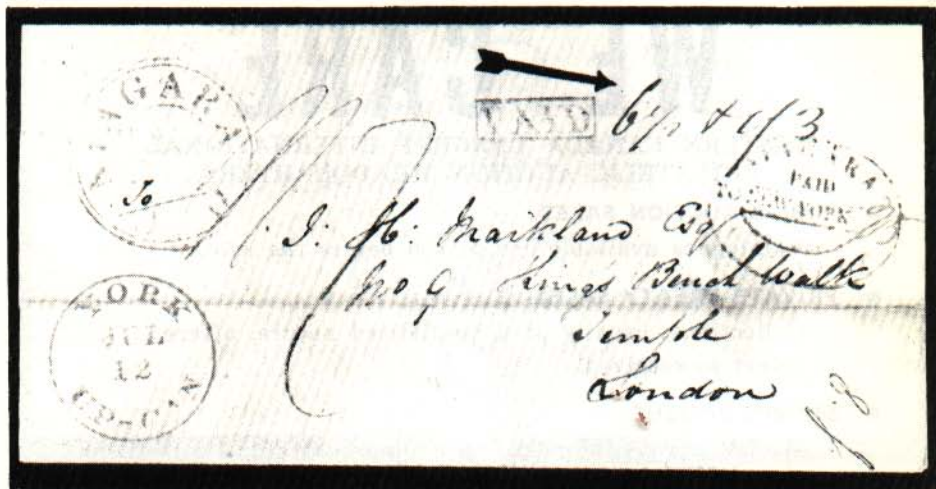 NIAGARA
PAID 6d + 1/3
NIAGARA
PAID
TO NEW-YORK
J. H. Markland Esq
No 9 Kings Bench Walk
Temple
London
YORK
JUL
12
UP-CAN